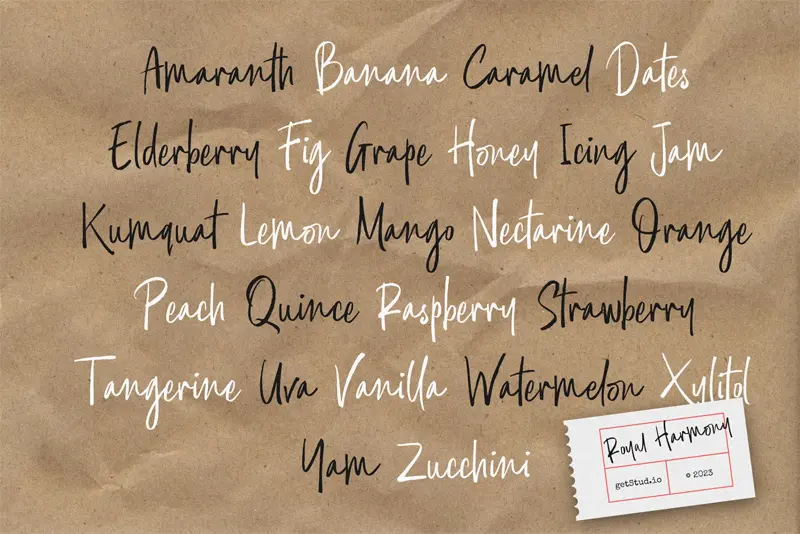 Amaranth Banana Caramel Dates
Elderberry Fig Grape Honey Icing Jam
Kumquat Lemon Mango Nectarine Orange
Peach Quince Raspberry Strawberry
Tangerine Uva Vanilla Watermelon Xylitol
Yam Zucchini
Royal Harmony
getStud.io © 2023